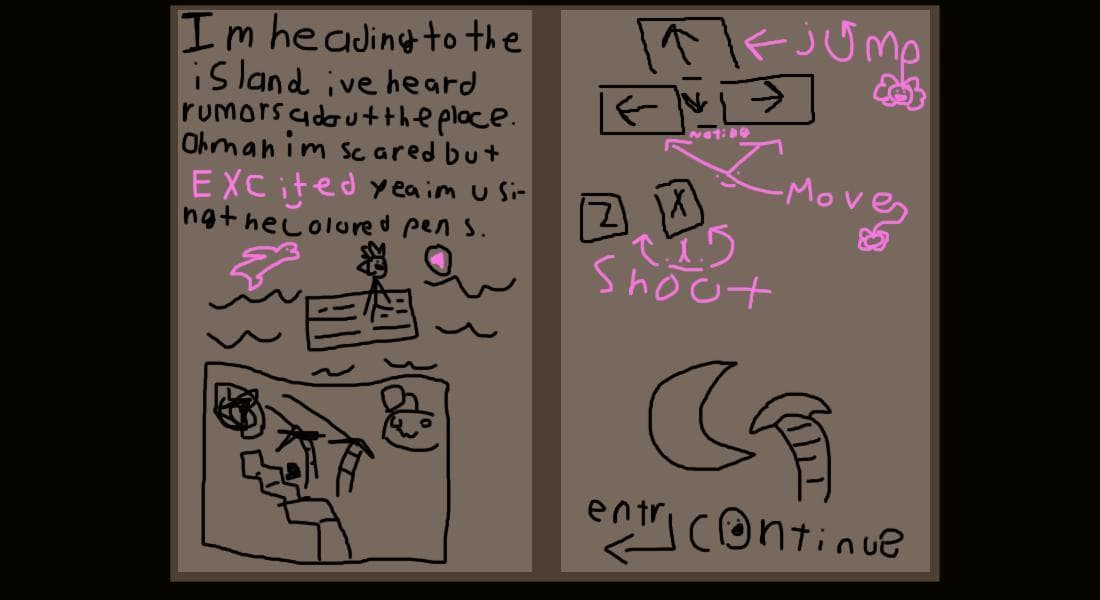 Im heading to the
island ive heard
rumors adout the place.
Oh mah im scared but
EXCited yea im usi-
ng the colored pens.
jump
noting
Move
Z X
Shoot
entr continue